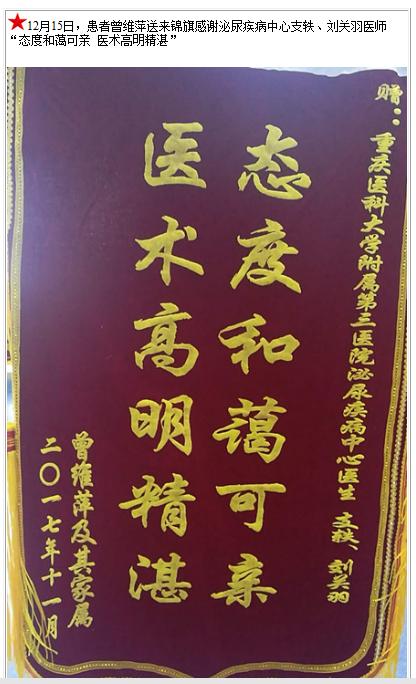 ★12月15日，患者曾维萍送来锦旗感谢泌尿疾病中心支轶、刘关羽医师
“态度和蔼可亲 医术高明精湛”
赠：重庆医科大学附属第三医院泌尿疾病中心医生 支轶、刘关羽
态度和蔼可亲
医术高明精湛
曾维萍及其家属
二〇一七年十一月